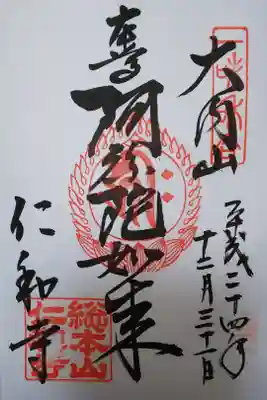 大内山
平成二十四年
十二月三十一日
本尊
阿弥陀如来
仁和寺
総本山
仁和寺